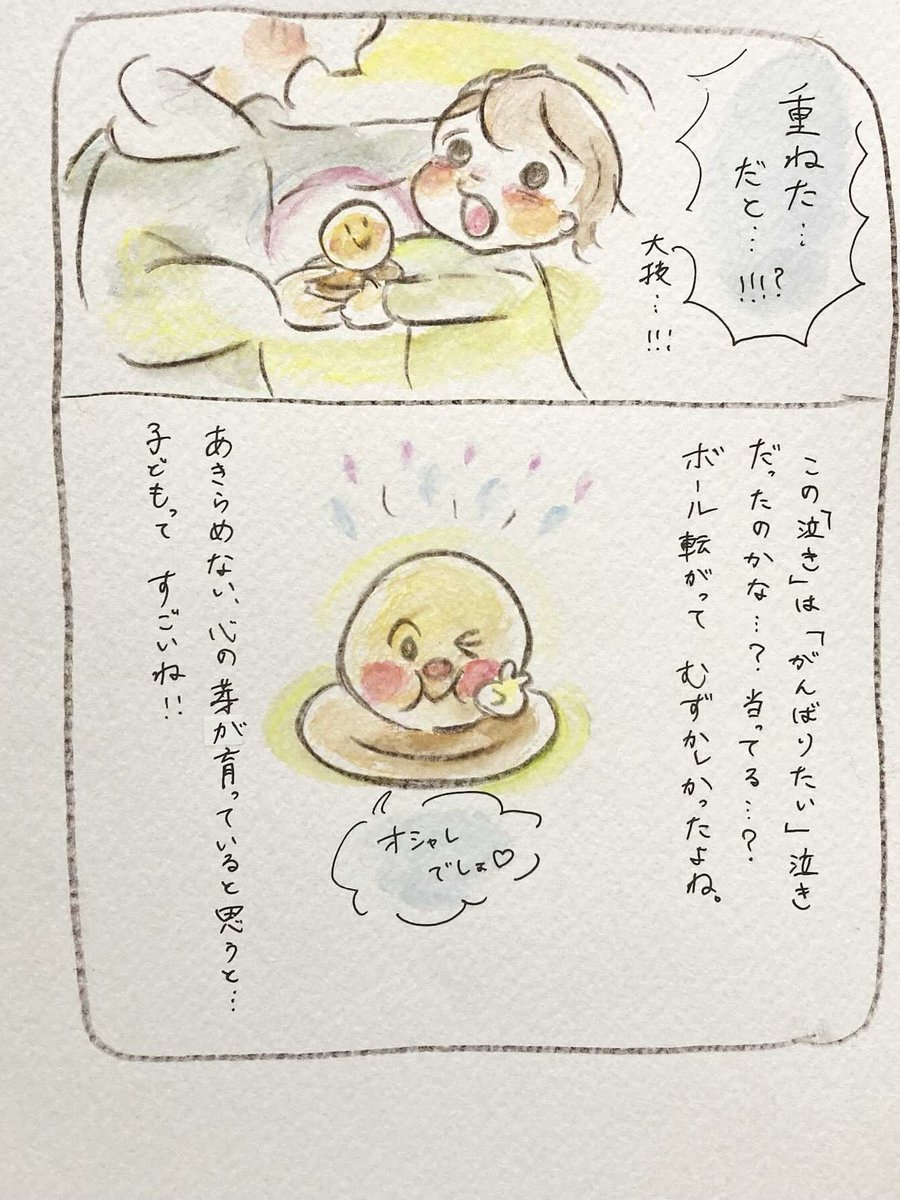 重ねた…
だと…!!!?
大技…!!!
この「泣き」は「がんばりたい」泣き
だったのかな…?当ってる…?
ボール転がって むずかしかったよね。
オシャレ
でしょ♡
あきらめない、心の芽が育っていると思うと…
子どもって すごいね!!